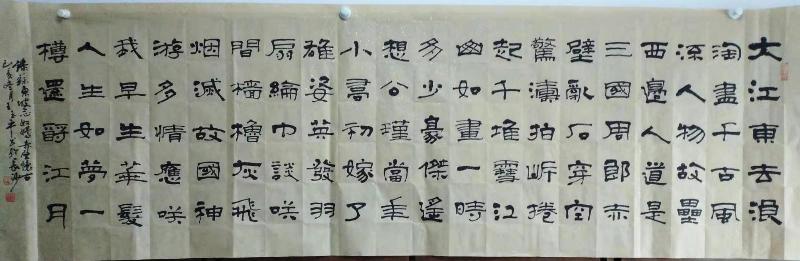 大江東去浪
淘盡千古風
流人物故壘
西邊人道是
三國周郎赤
壁亂石穿空
驚濤拍岍捲
起千堆雪江
山如畫一時
多少豪傑遙
想公瑾當年
小喬初嫁了
雄姿英發羽
扇綸巾談咲
間檣櫓灰飛
烟滅故國神
游多情應咲
我早生華髮
人生如夢一
樽還酹江月
錄蘇東坡念奴嬌赤壁懷古
己亥冬月